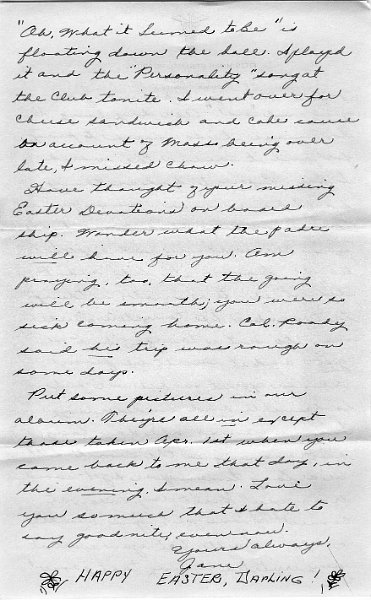 "Oh, What it Seemed to be" is
floating down the hall. I played
it and the "Personality" song at
the Club tonite. I went over for
cheese sandwich and coke cause
on account of Mass being over
late, I missed chow.
Have thought of your missing
Easter Devotions on board
ship. Wonder what the padre
will have for you. Am
praying, too, that the going
will be smooth; you were so
sick coming home. Col. Roady
said his trip was rough on
some days.
Put some pictures in our
album. They're all in except
those taken Apr. 1st when you
came back to me that day, in
the evening, I mean. Love
you so much that I hate to
say goodnite, even now.
Yours always,
Jane
HAPPY EASTER, DARLING!